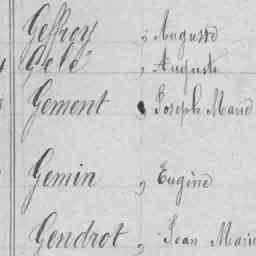 Geffroy, Auguste
Gelé, Auguste
Gement, Joseph Marie
Gemin, Eugène
Gendrot, Jean Marie